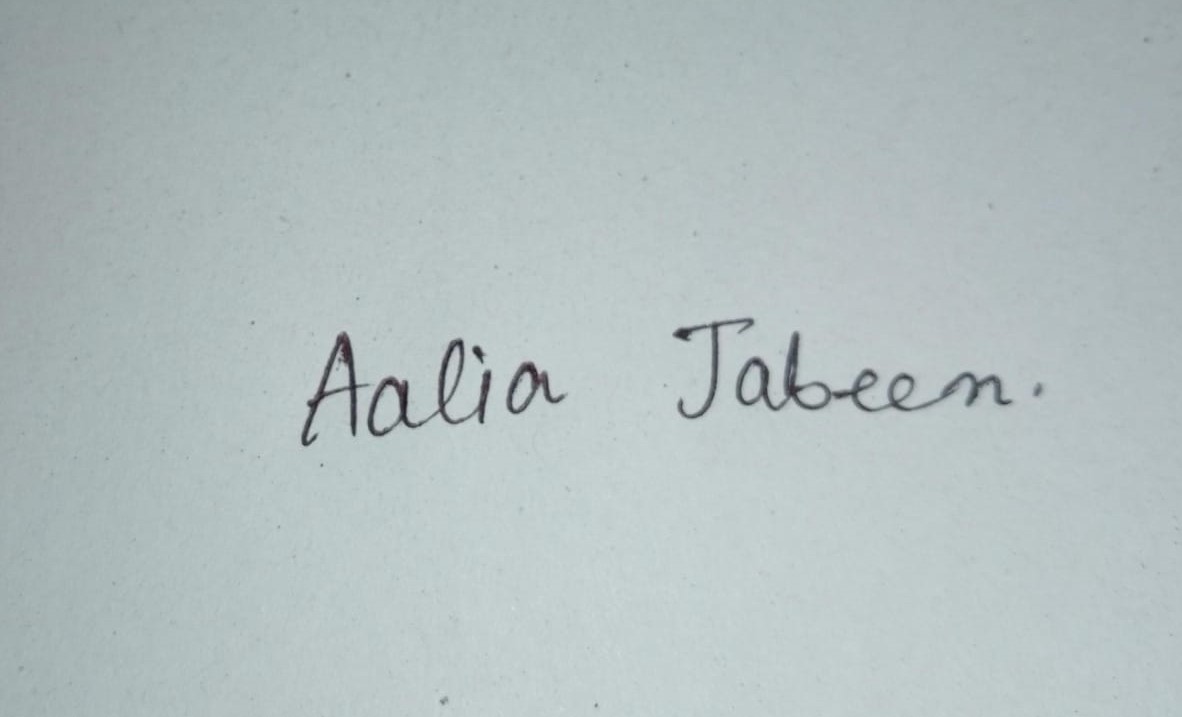 Aalia Jabeen.